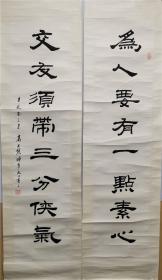 為人要有一點素心
交友須帶三分俠氣